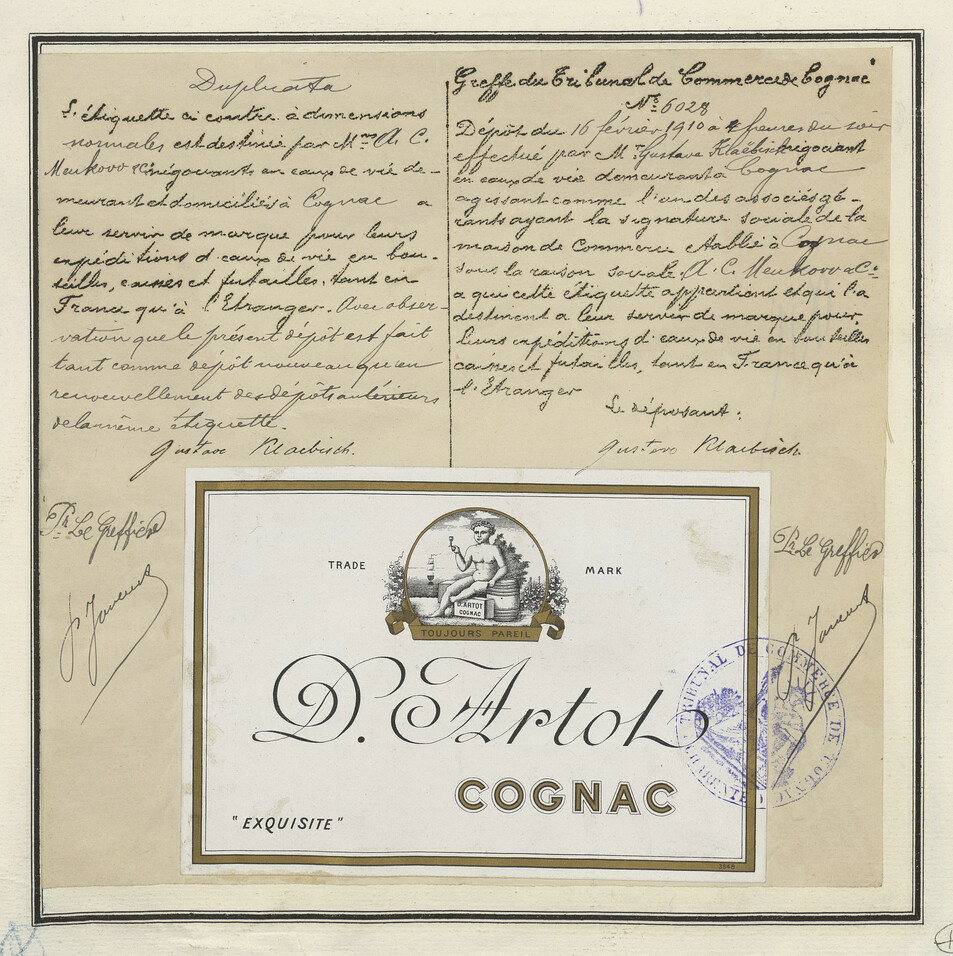 Duplicata
L'étiquette ci contre à dimensions
normales est destinée par Mrs A. C.
Meukow & Cie négociants en eaux de vie de-
meurant et domiciliés à Cognac a
leur servir de marque pour leurs
expéditions d'eaux de vie en bou-
teilles, caisses et futailles, tant en
France qu'à l'Etranger. Avec obser-
vation que le présent dépôt est fait
tant comme dépôt nouveau qu'en
renouvellement des dépôts antérieurs
de la même étiquette.
Gustave Klaebisch.
Pr Le Greffier
Greffe du Tribunal de Commerce de Cognac
No 6028
Dépôt du 16 février 1910 à 4 heures du soir
effectué par Mr Gustave Klaëbisch négociant
en eaux de vie demeurant à Cognac
agissant comme l'un des associés gé-
rants ayant la signature sociale de la
maison de Commerce établie à Cognac
sous la raison sociale A. C. Meukow & Cie
a qui cette étiquette appartient et qui l'a
destinent a leur servir de marque pour
leurs expéditions d'eaux de vie en bouteilles
caisses et futailles, tant en France qu'à
l'Etranger
Le déposant:
Gustave Klaebisch.
Pr Le Greffier
TRADE MARK
D. ARTOT
COGNAC
TOUJOURS PAREIL
D. Artot
COGNAC
"EXQUISITE"
TRIBUNAL DE COMMERCE DE COGNAC
(CHARENTE)